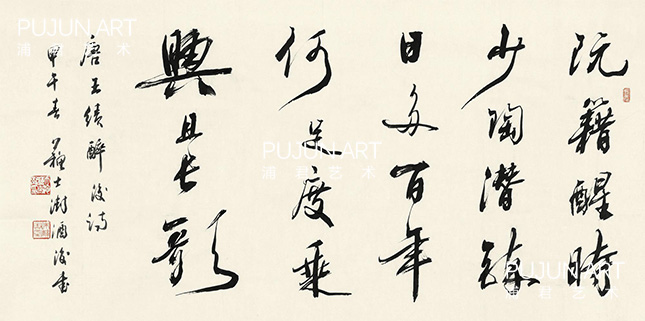 阮籍醒時
少陶潛醉
日多百年
何足度乘
興且長歌
唐王績醉後詩
甲午春蘇士澍酒後書
PUJUN.ART
浦君艺术
PUJUN.ART
浦君艺术
PUJUN.ART
浦君艺术